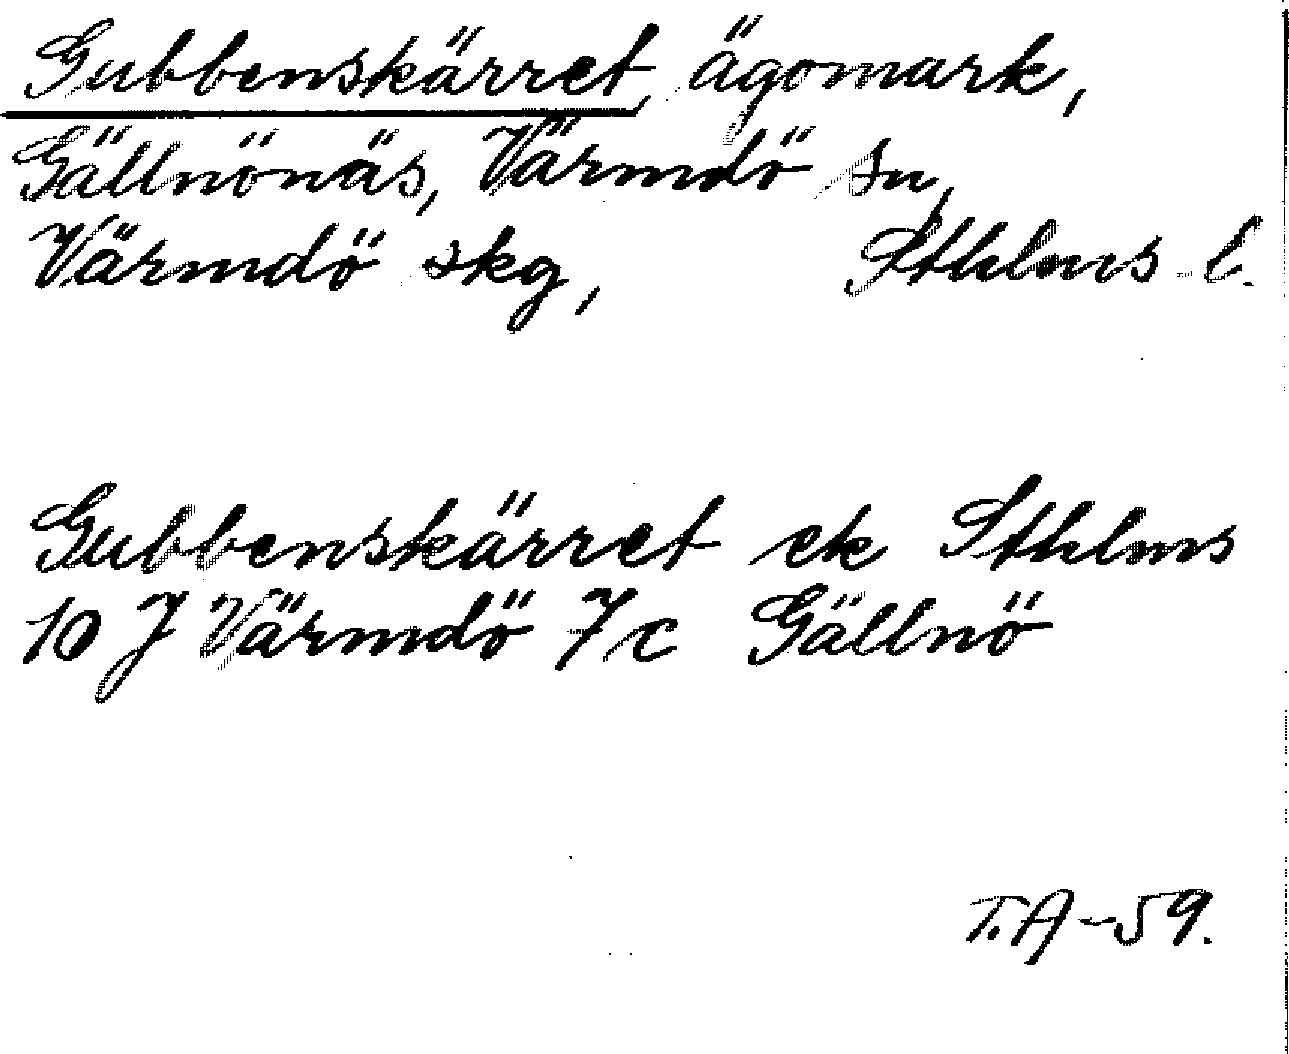 Gubbenskärret, ägomark,
Gällnönäs, Värmdö sn,
Värmdö skg, Sthlms l.
Gubbenskärret ek Sthlms
10 J Värmdö 7c Gällnö
T.A-59.